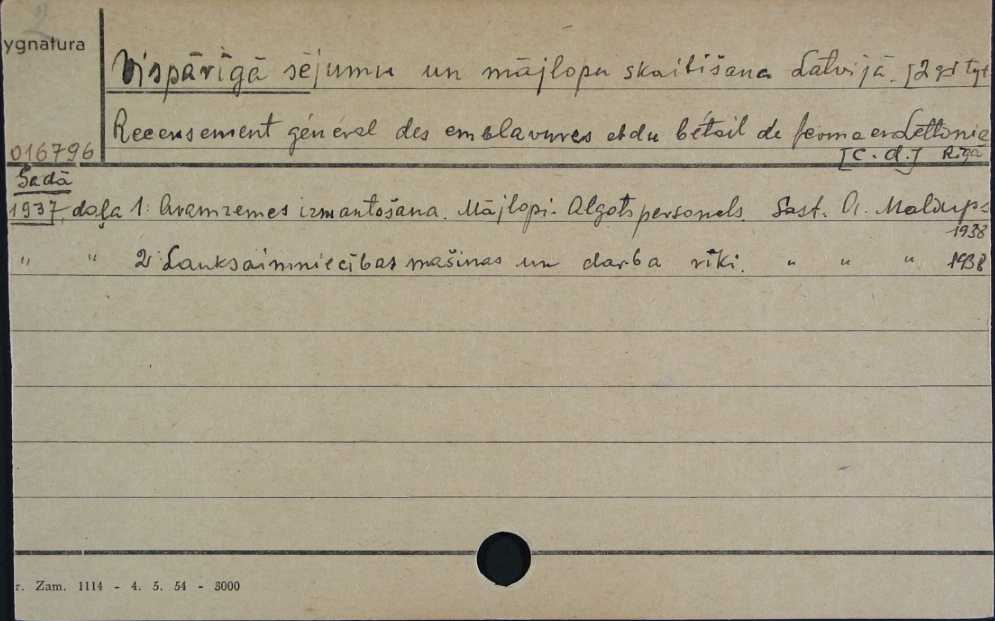 ygnatura
Vispārīgā sējumu un mājlopu skaitišana Latvijā. [2 gł tyt
Recensement général des emblavures et du bétail de ferme en Lettonie
016796
[C. d.] Rīgā
Gadā
1937 daļa 1: Aramzemes izmantošana. Mājlopi. Algots personels. Sast. A. Maldups
1938
" " 2 Lauksaimniecības mašinas un darba rīki. " " " 1938
r. Zam. 1114 - 4. 5. 54 - 3000